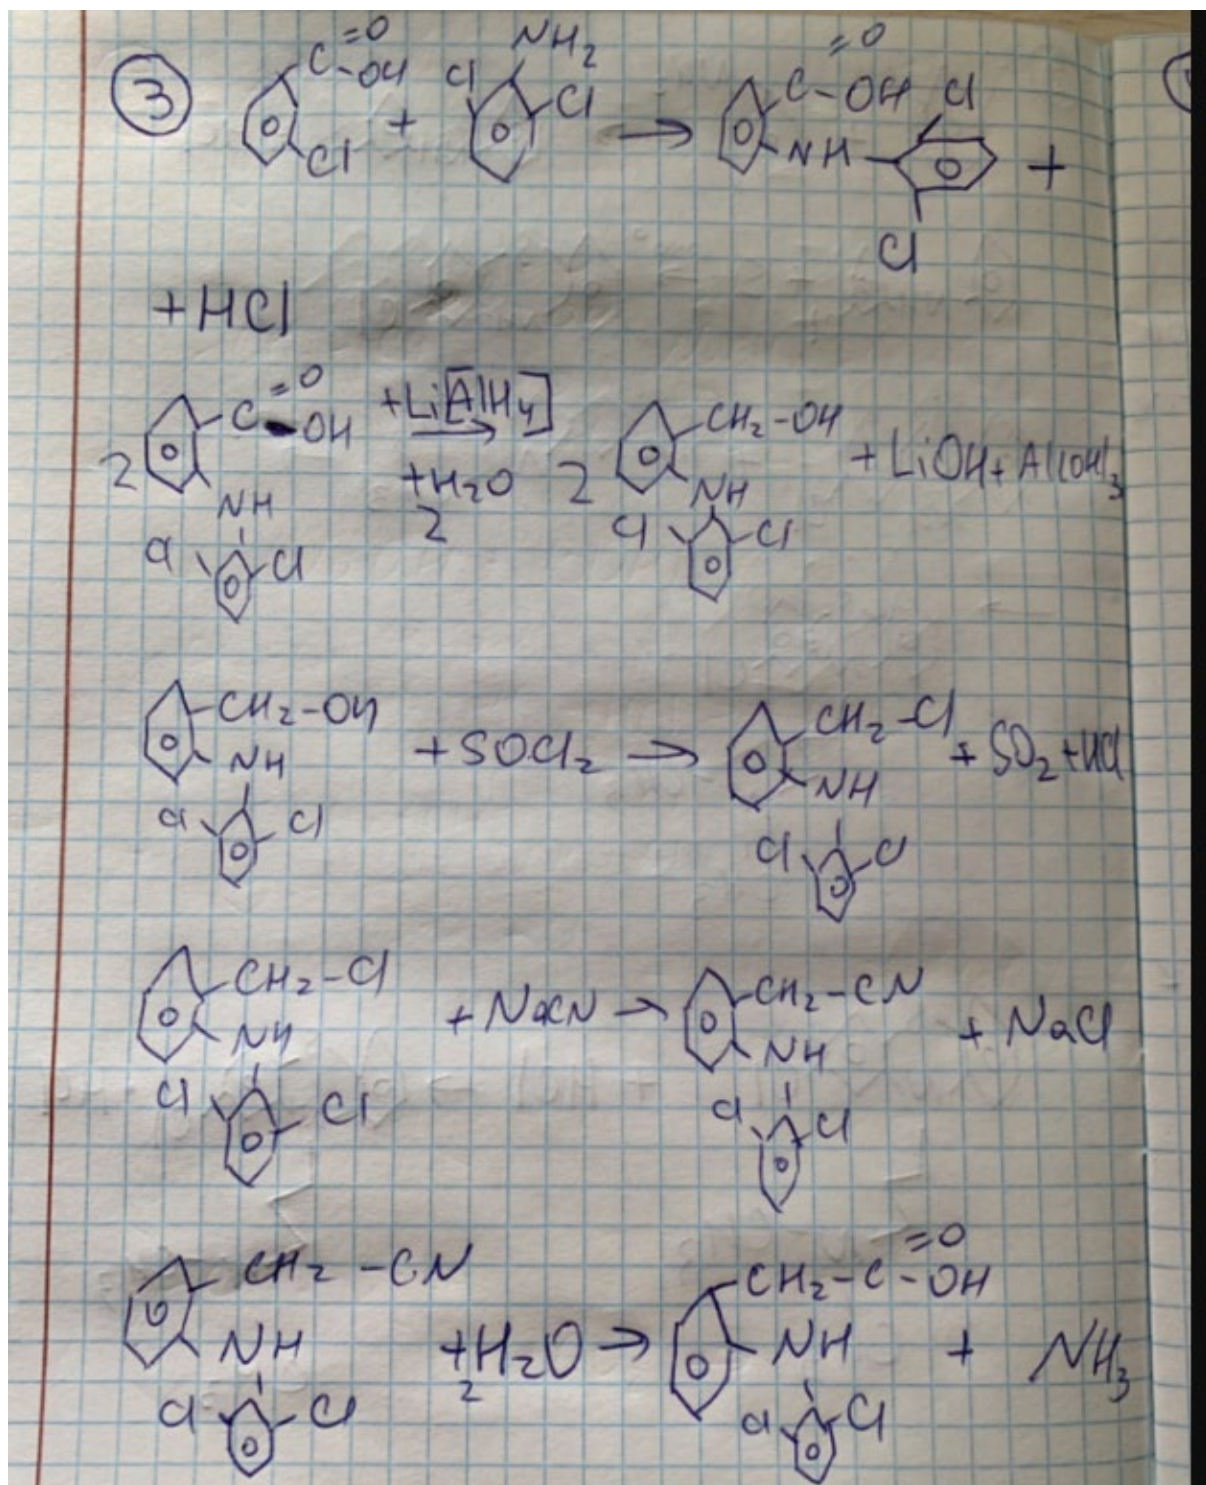 3
C=O
-OH
Cl + Cl NH2 Cl → C=O -OH NH Cl Cl +
+HCl
2 C=O OH NH Cl Cl +Li[AlH4] → +H2O 2 2 CH2-OH NH Cl Cl + LiOH + Al(OH)3
CH2-OH NH Cl Cl + SOCl2 → CH2-Cl NH Cl Cl + SO2 + HCl
CH2-Cl NH Cl Cl + NaCN → CH2-CN NH Cl Cl + NaCl
CH2-CN NH Cl Cl + 2 H2O → CH2-C=O -OH NH Cl Cl + NH3